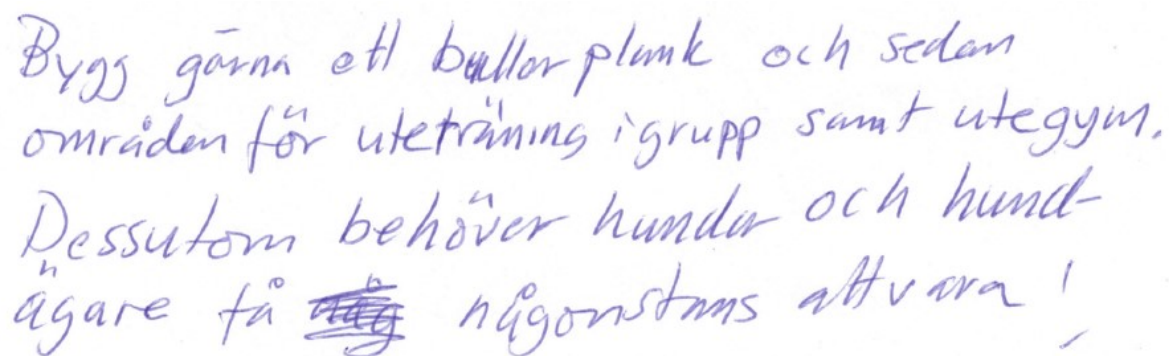 Bygg gärna ett bullerplank och sedan
områden för uteträning i grupp samt utegym.
Dessutom behöver hundar och hund-
ägare få någonstans att vara!